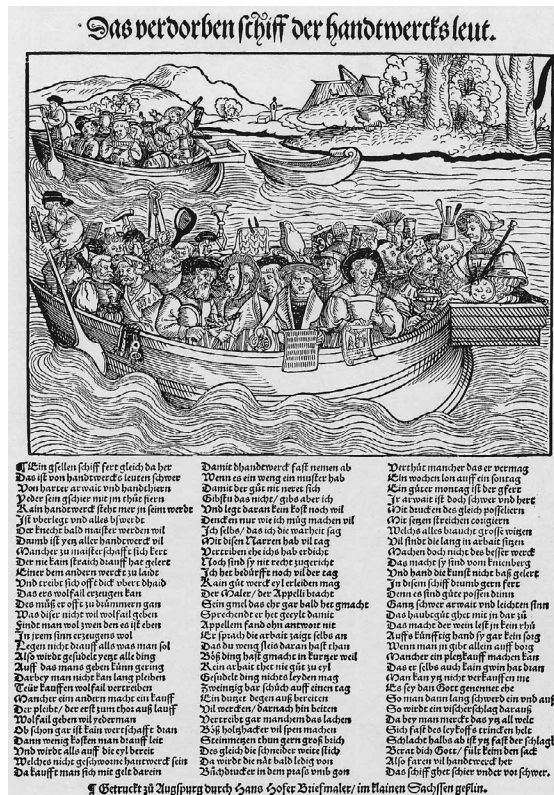 Das verdorben schiff der handtwercksleut.
¶ Ein gsellen schiff fert gleich da her
Das ist von handtwercks leuten schwer
Von harter arwait vnd handthiern
Yeder sein gschier mit jm thůt fiern
Kain handtwerck steht mer jn seim werdt
Ist vberlegt vnd alles bschwerdt
Der knecht bald maister werden wil
Damit ist yetz aller handtwerck vil
Mancher zu maisterschafft sich kert
Der nie kain straich darauff hat gelert
Einer dem andern werckt zu laidt
Vnd treibt sich offt dick vber d haid
Das ers wolfail erzeugen kan
Des můß er offt zu drümmern gan
Was diser nicht wil wolfail geben
Findt man wol zwen den ist eben
In jrem sinn erzeugens wol
Legen nicht drauff alls was man sol
Also wirdt gesudelt yetz alle ding
Auff das mans geben künn gering
Darbey man nicht kan lang pleiben
Teür kauffen wolfail vertreiben
Mancher eim andern macht ein kauff
Der pleibt / der erst zum thor auß lauff
Wolfail geben wil yederman
Ob schon gar ist kain werschafft dran
Dann wenig kosten man drauff leit
Vnd wirdt alls auff die eyl bereit
Welches nicht geschwoone hantwerck sein
Da kaufft man sich mit gelt darein
Damit dhandtwerck fast nemen ab
Wenn es ein weng ein muster hab
Damit der gůt nit neret sich
Gibstu das nicht / gibs aber ich
Vnd legt daran kein kost noch wil
Dencken nur wie ich müg machen vil
Ich selbs / das ich die warheit sag
Mit disen Narren hab vil tag
Vertriben ehe ichs hab erdicht
Noch sind sy nit recht zugericht
Ich het bedürfft noch vil der tag
Kain gůt werck eyl erleiden mag
Der Maler / der Appelli bracht
Sein gmel das ehr gar bald het gmacht
Sprechende er het geeylt damit
Appellem fand ohn antwort nit
Er sprach die arwait zaigt selbs an
Das du weng fleis daran hast than
Böß ding hast gmacht in kurtzer weil
Kein arbait thet nie gůt zu eyl
Gesudelt ding nichts leyden mag
Zweintzig bar schůch auff einen tag
Ein dutzet degen auß bereiten
Vil wercken / darnach hin beiten
Vertreibt gar manchem das lachen
Böß holtzhacker vil spen machen
Steinmetzen thun gern groß brich
Des gleich die schneider weite stich
Da wirdt die nåt bald ledig von
Bůchdrucker in dem praß vmb gon
Verthůt mancher das er vermag
Ein wochen lon auff ein sontag
Ein gůter montag ist der gfert
Ir arwait ist doch schwer vnd hert
Mit drucken des gleich posselieren
Mit setzen streichen corigiern
Welchs alles baucht grosse witzen
Vil sindt die lang in arbait sitzen
Machen doch nicht des besser werck
Das macht sy sind vom knienberg
Vnd hand die kunst nicht baß gelert
In disem schiff drumb gern fert
Denn es sind gůte possen drinn
Gantz schwer arwait vnd leichten sinn
Das haubtgůt ghet mit in dar zu
Das macht der wein lest jn kein rhů
Auffs künfftig hand sy gar kein sorg
Wenn man jn gibt allein auff borg
Mancher ein pletzkauff machen kan
Das er selbs auch kain gwin hat dran
Man kan ytz nicht verkauffen me
Es sey dan Gott genennet ehe
So man dann lang schwerdt ein vnd auß
So wirdt ein vischerschlag darauß
Da bey man merckt das ytz all welt
Sich fast des leykoffs trincken helt
Schlacht halbs ab ist ytz fast der schlag
Berat dich Gott / fült keim den sack
Also faren vil handtwerck her
Das schiff ghet schier vnder vor schwer.
¶ Getruckt zů Augspurg durch Hans Hofer Briefmaler / im klainen Sachssen geßlin.